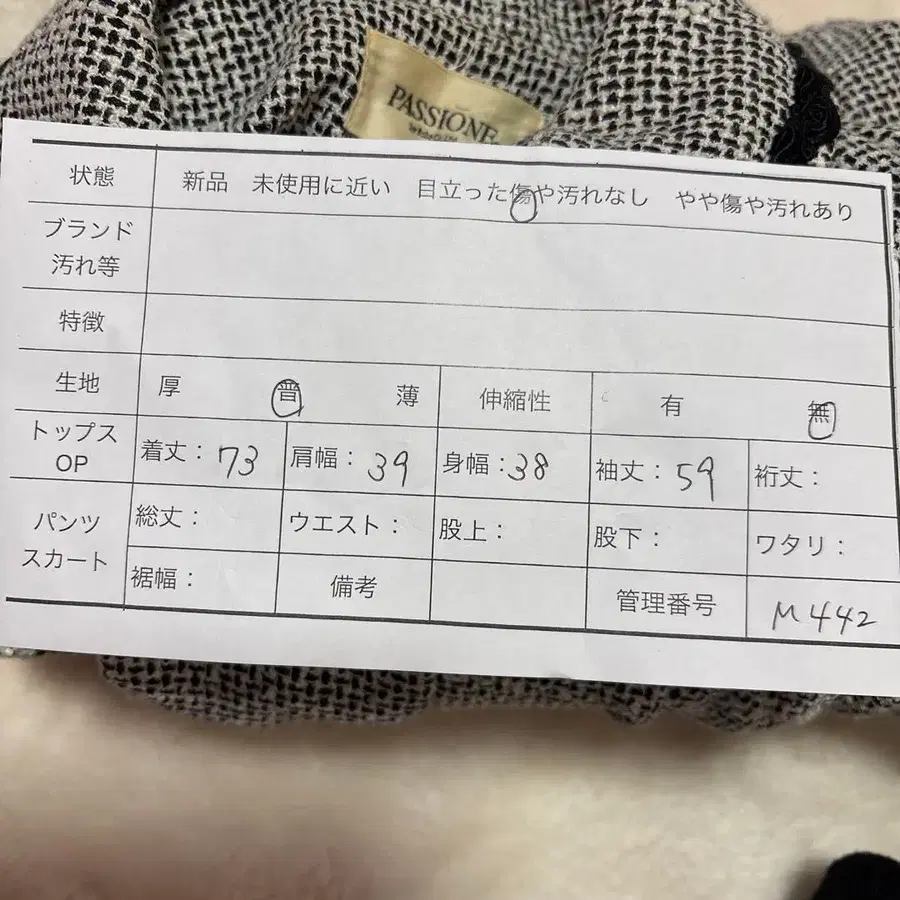 PASSIONE
状態 新品 未使用に近い 目立った傷や汚れなし やや傷や汚れあり
ブランド
汚れ等
特徴
生地 厚 普 薄 伸縮性 有 無
トップス
OP 着丈：73 肩幅：39 身幅：38 袖丈：59 裄丈：
パンツ
スカート 総丈： ウエスト： 股上： 股下： ワタリ：
裾幅： 備考 管理番号 M442